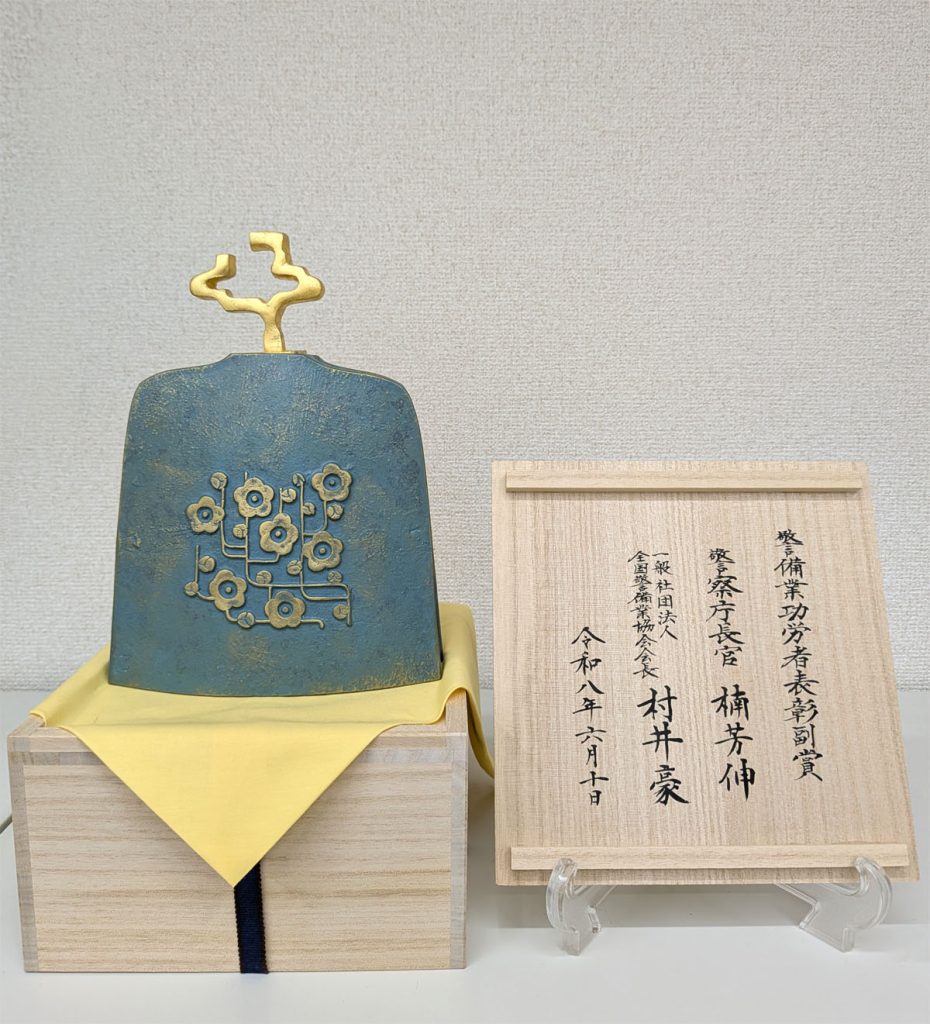 警備業功労者表彰副賞
警察庁長官 楠芳伸
一般社団法人
全国警備業協会会長 村井豪
令和八年六月十日